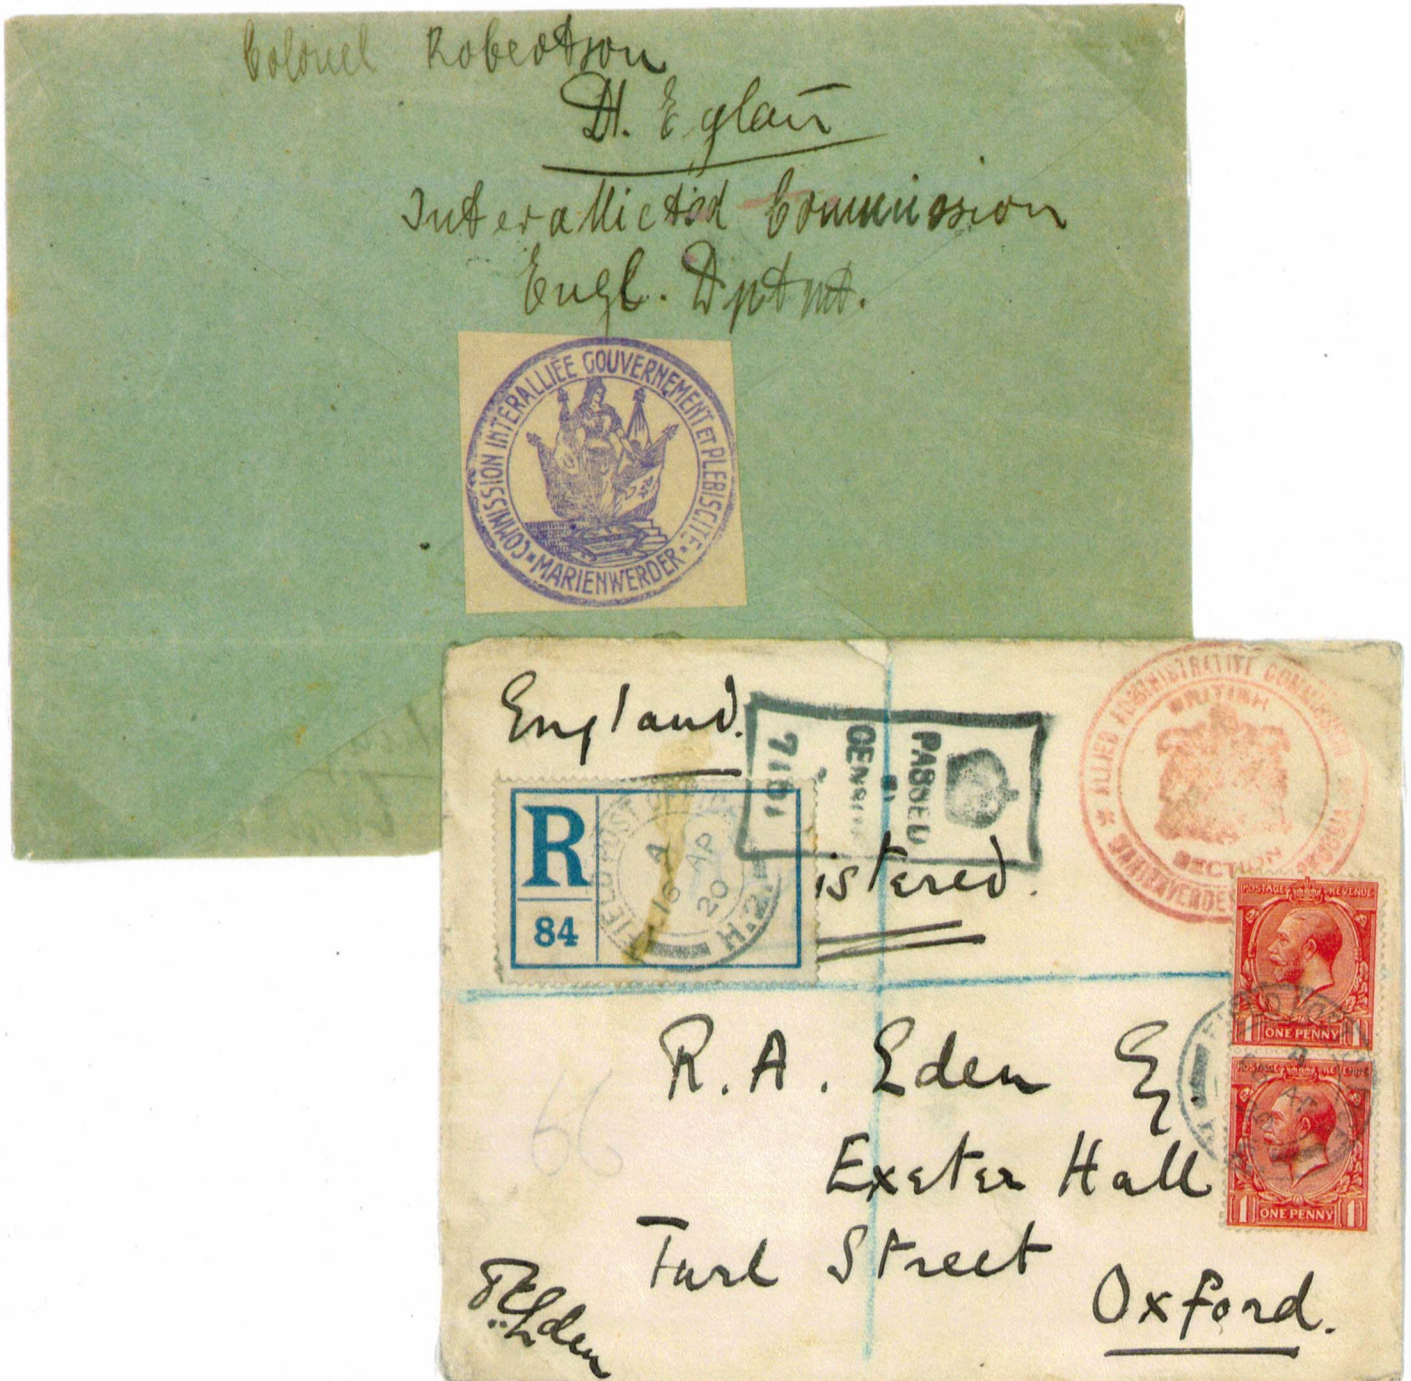 Colonel Robertson
Dt. Eylau
Interallictid Commission
Engl. Dptmt.
COMMISSION INTERALLIÉE GOUVERNEMENT ET PLEBISCITE
* MARIENWERDER *
England.
PASSED
BY
CENSOR
ALLIED ADMINISTRATIVE COMMISSION
BRITISH
SECTION
R
84
FIELD POST OFFICE
A
16 AP
20
H.2.
istered.
POSTAGE REVENUE
1 ONE PENNY 1
POSTAGE REVENUE
1 ONE PENNY 1
R. A. Eden Esq
Exeter Hall
Turl Street
Oxford.
66
Eden